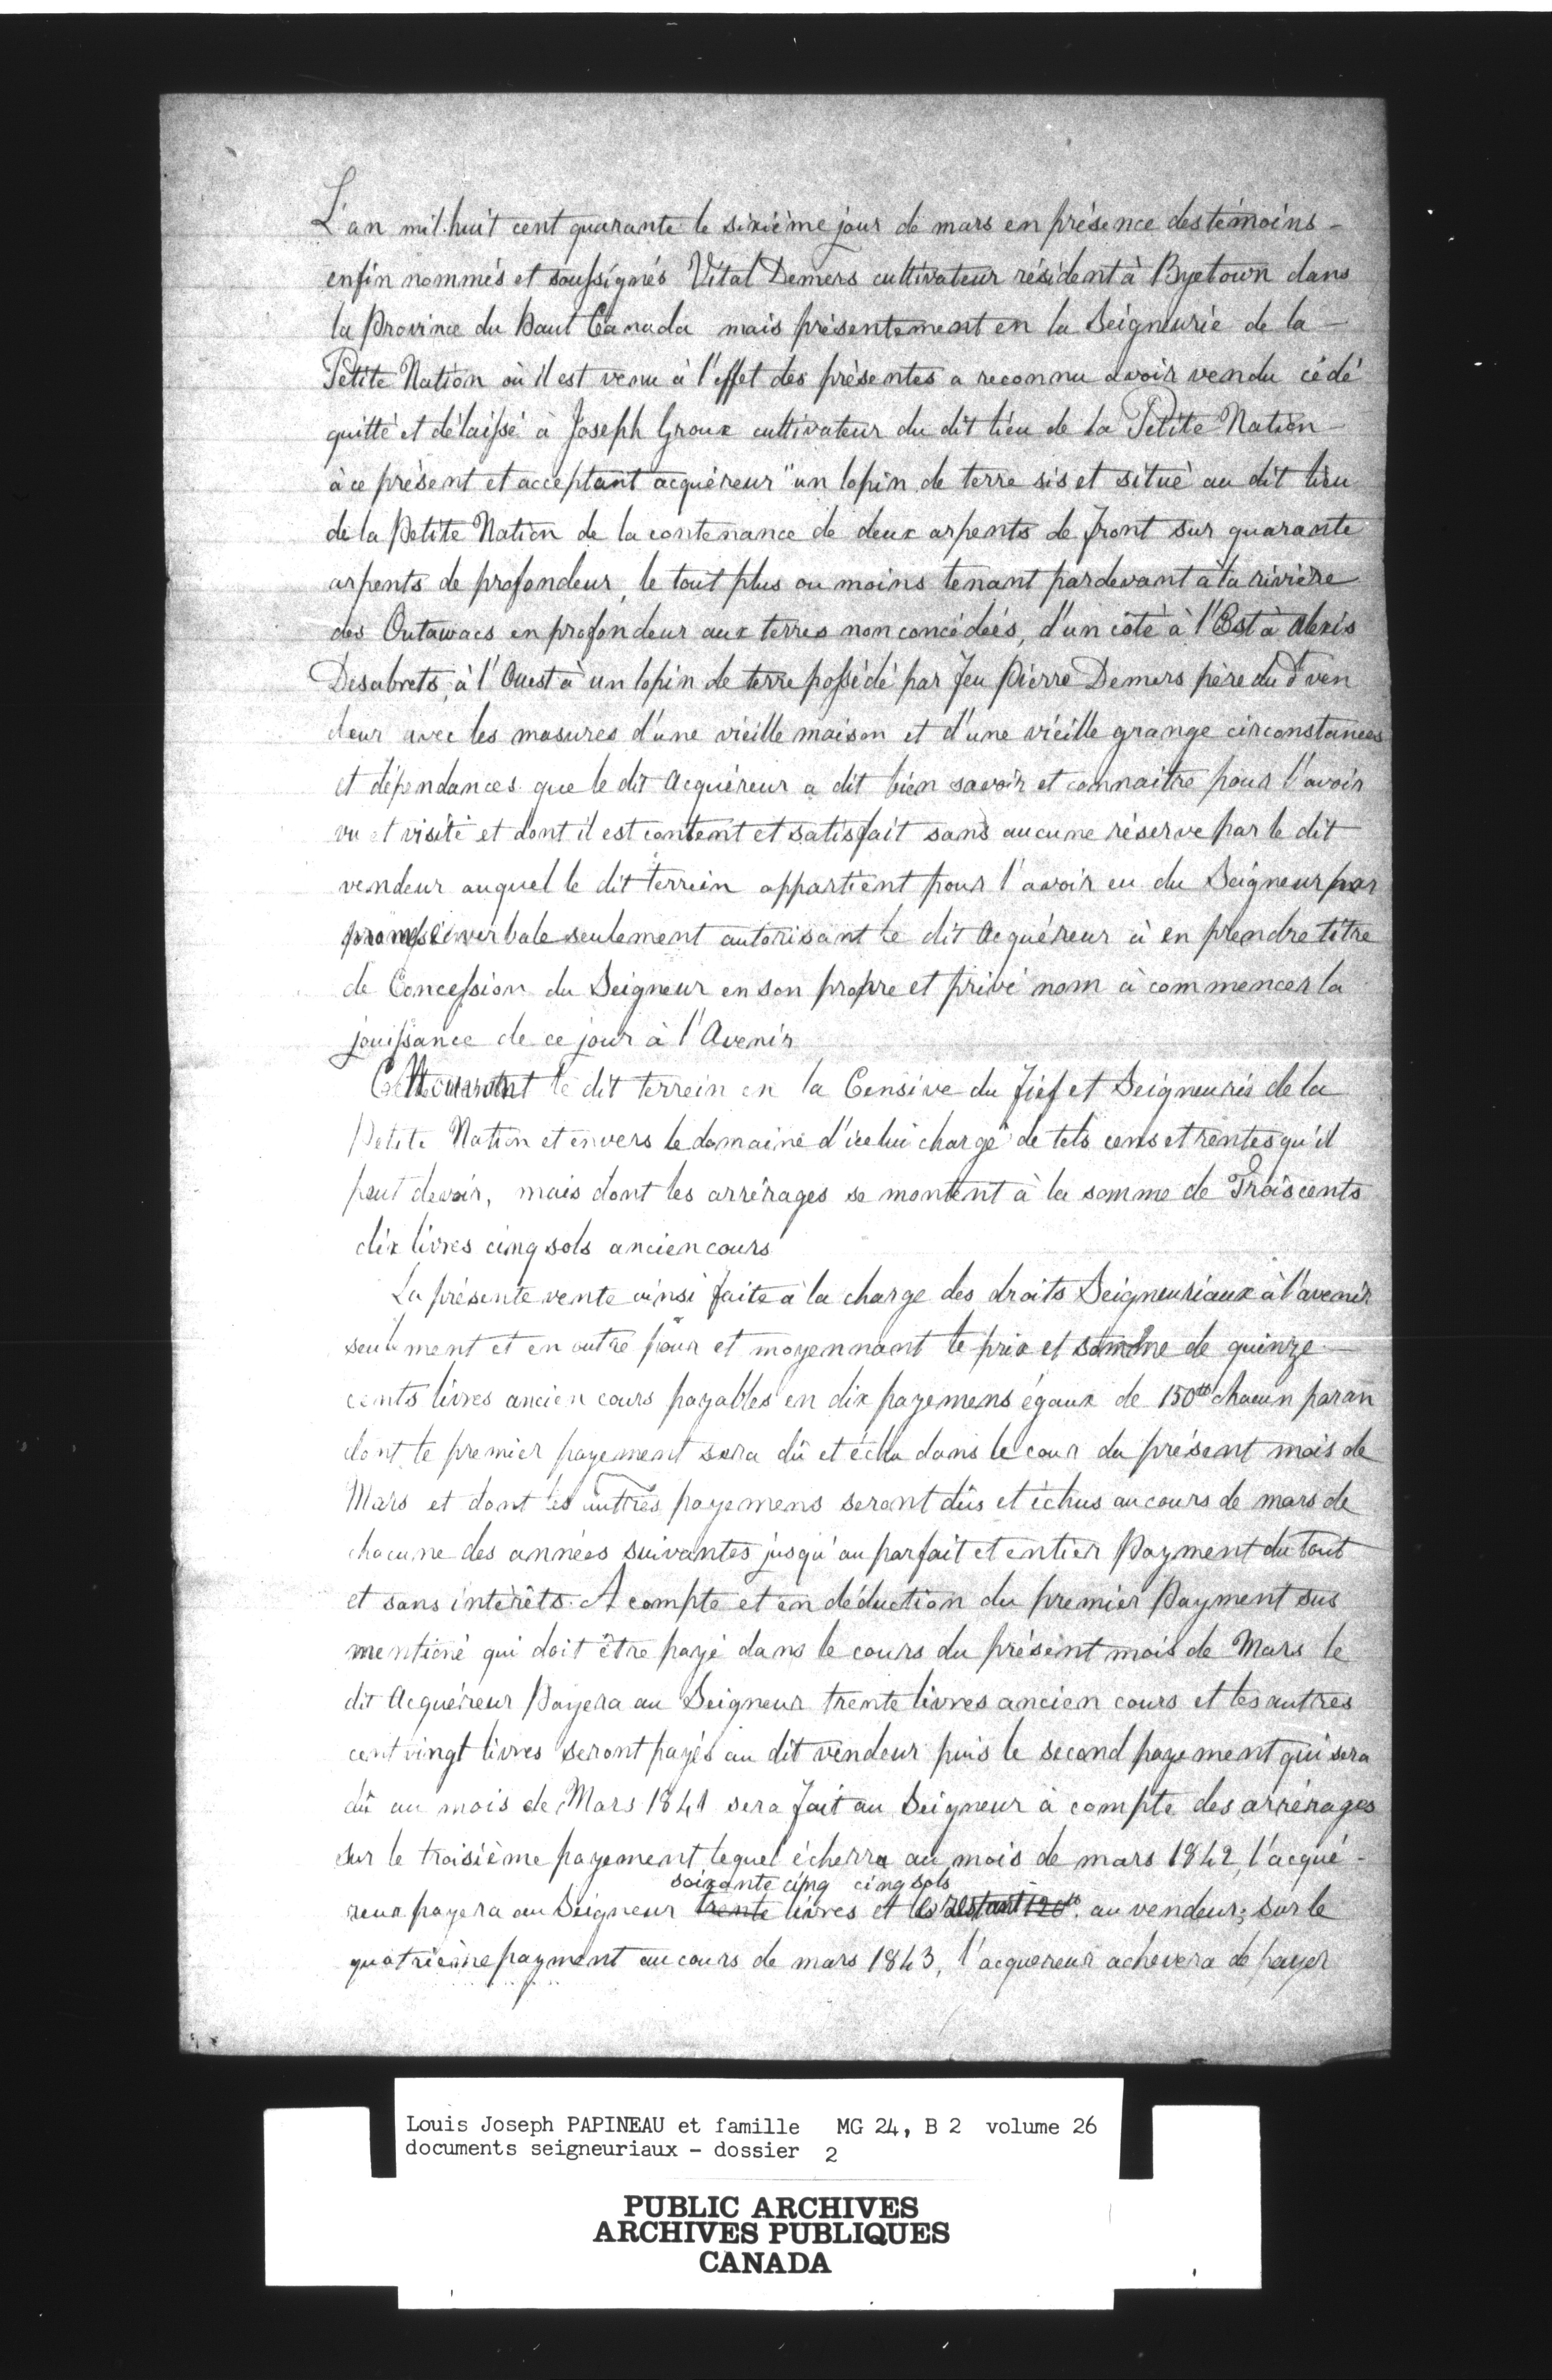 L'an mil-huit cent quarante le sixième jour de mars en présence des témoins -
enfin nommés et soussignés Vital Demers cultivateur résident à Byetown dans
la Province du Haut Canada mais présentement en la Seigneurie de la -
Petite Nation où il est venu à l'effet des présentes a reconnu avoir vendu cédé
quitté et délaissé à Joseph Groux cultivateur du dit lieu de la Petite Nation -
à ce présent et acceptant acquéreur "un lopin de terre sis et situé au dit lieu
de la Petite Nation de la contenance de deux arpents de front sur quarante
arpents de profondeur, le tout plus ou moins tenant pardevant à la rivière
des Outawacs en profondeur aux terres non concédées, d'un côté à l'Est à Alexis
Desabrets, à l'Ouest à un lopin de terre possédé par feu Pierre Demers père du dt ven
deur avec les masures d'une vieille maison et d'une vieille grange circonstances
et dépendances que le dit Acquéreur a dit bien savoir et connaitre pour l'avoir
vu et visité et dont il est content et satisfait sans aucune réserve par le dit
vendeur auquel le dit terrein appartient pour l'avoir eu du Seigneur par
promesse verbale seulement autorisant le dit Acquéreur à en prendre titre
de Concession du Seigneur en son propre et privé nom à commencer la
jouissance de ce jour à l'Avenir
le dit terrein en la Censive du fief et Seigneurie de la
Petite Nation et envers le domaine d'icelui chargé de tels cens et rentes qu'il
peut devoir, mais dont les arrérages se montent à la somme de Trois cents
dix livres cinq sols ancien cours
La présente vente ainsi faite à la charge des droits Seigneuriaux à l'avenir
seulement et en outre pour et moyennant le prix et somme de quinze -
cents livres ancien cours payables en dix payemens égaux de 150tt chacun par an
dont le premier payement sera dû et échu dans le cour du présent mois de
Mars et dont les autres payemens seront dûs et échus au cours de mars de
chacune des années suivantes jusqu'au parfait et entier Payment du tout
et sans intérêts. A compte et en déduction du premier Payment sus
mentioné qui doit être payé dans le cours du présent mois de Mars le
dit Acquéreur Payera au Seigneur trente livres ancien cours et les autres
cent vingt livres seront payés au dit vendeur puis le second payement qui sera
dû au mois de Mars 1841 sera fait au Seigneur à compte des arrérages
sur le troisième payement lequel écherra au mois de mars 1842, l'acqué-
soixante cinq cinq sols
reur payera au Seigneur trente livres et le restant 120tt au vendeur; sur le
quatrième payment au cours de mars 1843, l'acquereur achevera de payer
Louis Joseph PAPINEAU et famille MG 24, B 2 volume 26
documents seigneuriaux - dossier 2
PUBLIC ARCHIVES
ARCHIVES PUBLIQUES
CANADA